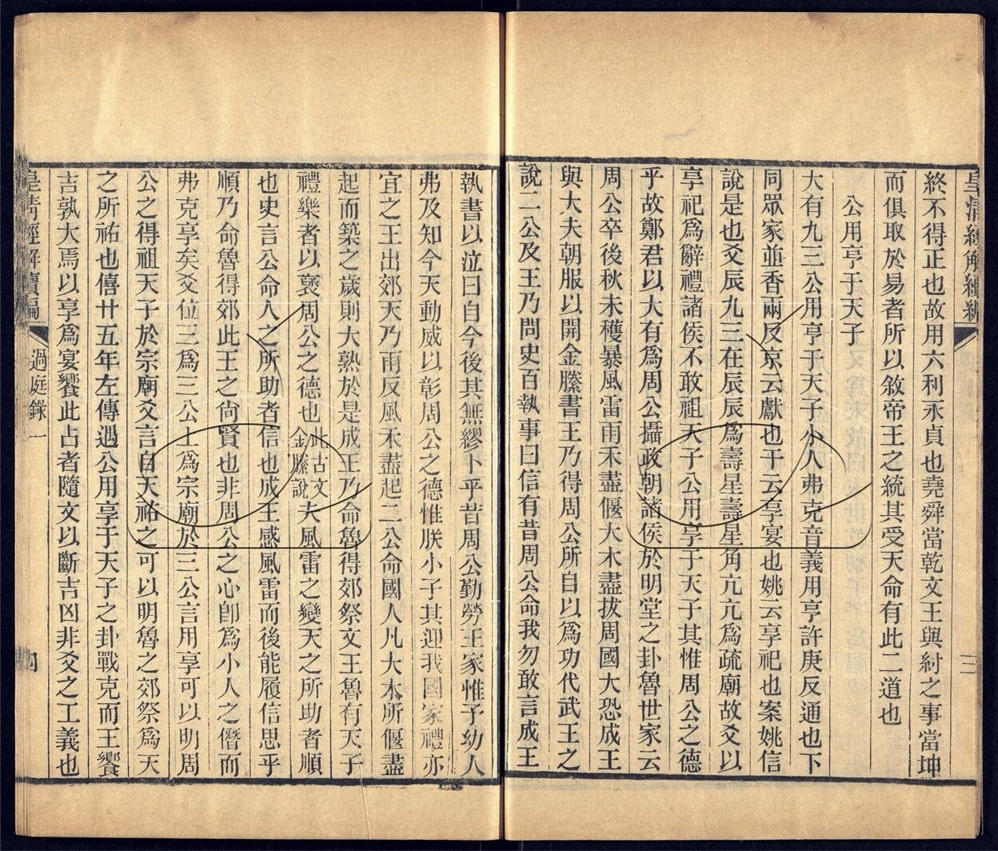 皇清經解續編
終不得正也故用六利永貞也堯舜當乾文王與紂之事當坤
而俱取於易者所以敘帝王之統其受天命有此二道也
公用亨于天子
大有九三公用亨于天子小人弗克音義用亨許庚反通也下
同眾家並香兩反京云獻也干云享宴也姚云享祀也案姚信
說是也爻辰九三在辰辰爲壽星壽星角亢亢爲疏廟故爻以
享祀爲辭禮諸侯不敢祖天子公用享于天子其惟周公之德
乎故鄭君以大有爲周公攝政朝諸侯於明堂之卦魯世家云
周公卒後秋未穫暴風雷雨禾盡偃大木盡拔周國大恐成王
與大夫朝服以開金縢書王乃得周公所自以爲功代武王之
說二公及王乃問史百執事曰信有昔周公命我勿敢言成王
三
執書以泣曰自今後其無繆卜乎昔周公勤勞王家惟予幼人
弗及知今天動威以彰周公之德惟朕小子其迎我國家禮亦
宜之王出郊天乃雨反風禾盡起二公命國人凡大木所偃盡
起而築之歲則大熟於是成王乃命魯得郊祭文王魯有天子
禮樂者以褒周公之德也此古文金縢說大風雷之變天之所助者順
也史言公命人之所助者信也成王感風雷而後能履信思乎
順乃命魯得郊此王之尙賢也非周公之心卽爲小人之僭而
弗克享矣爻位三爲三公上爲宗廟於三公言用享可以明周
公之得祖天子於宗廟爻言自天祐之可以明魯之郊祭爲天
之所祐也僖廿五年左傳遇公用享于天子之卦戰克而王饗
吉孰大焉以享爲宴饗此占者隨文以斷吉凶非爻之工義也
皇清經解續編
過庭錄一
四